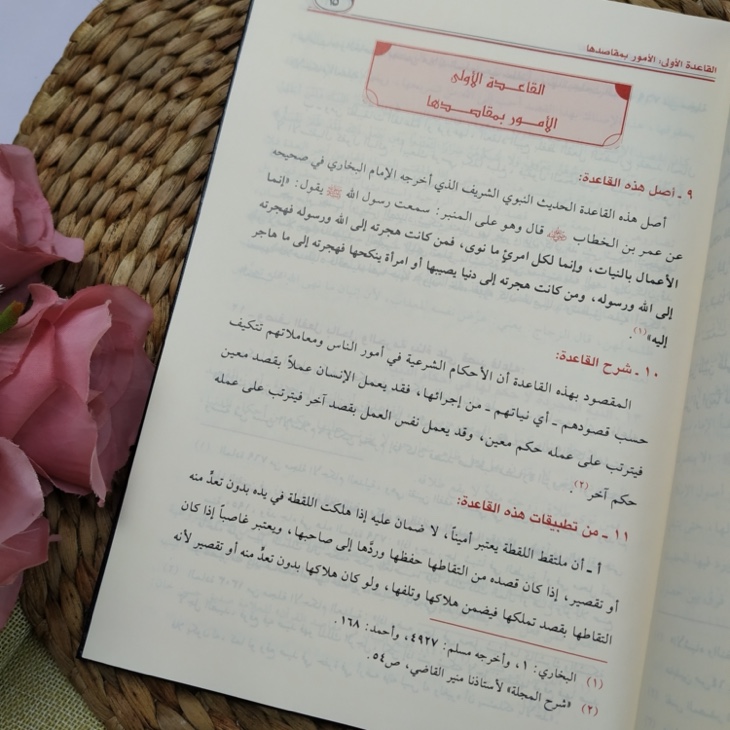 ١٥
القاعدة الأولى: الأمور بمقاصدها
القاعدة الأولى
الأمور بمقاصدها
٩ ـ أصل هذه القاعدة:
أصل هذه القاعدة الحديث النبوي الشريف الذي أخرجه الإمام البخاري في صحيحه
عن عمر بن الخطاب رضي الله عنه قال وهو على المنبر: سمعت رسول الله ﷺ يقول: «إنما
الأعمال بالنيات، وإنما لكل امرئٍ ما نوى، فمن كانت هجرته إلى الله ورسوله فهجرته
إلى الله ورسوله، ومن كانت هجرته إلى دنيا يصيبها أو امرأة ينكحها فهجرته إلى ما هاجر
إليه»(١).
١٠ ـ شرح القاعدة:
المقصود بهذه القاعدة أن الأحكام الشرعية في أمور الناس ومعاملاتهم تتكيف
حسب قصودهم ـ أي نياتهم ـ من إجرائها، فقد يعمل الإنسان عملاً بقصد معين
فيترتب على عمله حكم معين، وقد يعمل نفس العمل بقصد آخر فيترتب على عمله
حكم آخر(٢).
١١ ـ من تطبيقات هذه القاعدة:
أ ـ أن ملتقط اللقطة يعتبر أميناً، لا ضمان عليه إذا هلكت اللقطة في يده بدون تعدٍّ منه
أو تقصير، إذا كان قصده من التقاطها حفظها وردَّها إلى صاحبها، ويعتبر غاصباً إذا كان
التقاطها بقصد تملكها فيضمن هلاكها وتلفها، ولو كان هلاكها بدون تعدٍّ منه أو تقصير لأنه
(١) البخاري: ١، وأخرجه مسلم: ٤٩٢٧، وأحمد: ١٦٨.
(٢) «شرح المجلة» لأستاذنا منير القاضي، ص٥٤.